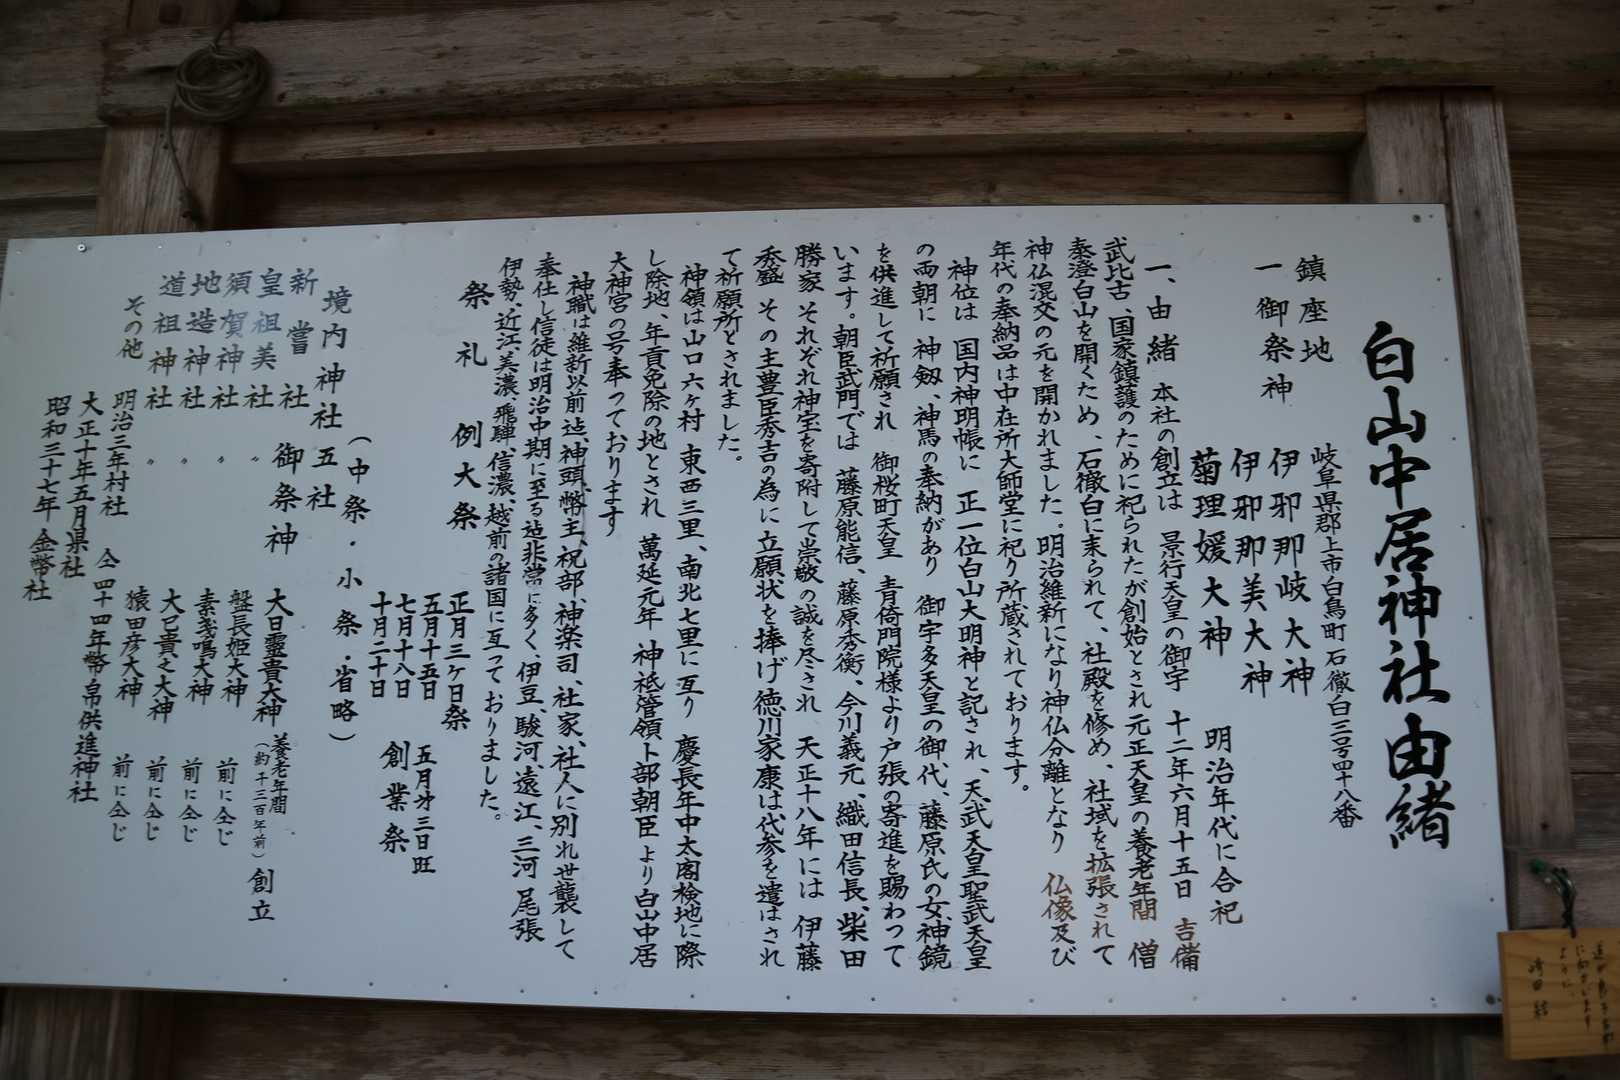 白山中居神社由緒
鎮座地　岐阜県郡上市白鳥町石徹白三号四十八番
一御祭神　伊邪那岐大神
伊邪那美大神
菊理媛大神　明治年代に合祀
一、由緒　本社の創立は　景行天皇の御宇　十二年六月十五日　吉備
武比古、国家鎮護のために祀られたが創始とされ元正天皇の養老年間　僧
泰澄白山を開くため、石徹白に来られて、社殿を修め、社域を拡張されて
神仏混交の元を開かれました。明治維新になり神仏分離となり　仏像及び
年代の奉納品は中在所大師堂に祀り所蔵されております。
神位は　国内神明帳に　正一位白山大明神と記され、天武天皇聖武天皇
の両朝に　神剱、神馬の奉納があり　御宇多天皇の御代、藤原氏の女、神鏡
を供進して祈願され　御桜町天皇　青倚門院様より戸張の寄進を賜わって
います。朝臣武門では　藤原能信、藤原秀衡、今川義元、織田信長、柴田
勝家　それぞれ神宝を寄附して崇敬の誠を尽され　天正十八年には　伊藤
秀盛　その主豊臣秀吉の為に立願状を捧げ徳川家康は代参を遣はされ
て祈願所とされました。
神領は山口六ヶ村　東西三里、南北七里に亙り　慶長年中太閤検地に際
し除地、年貢免除の地とされ　萬延元年　神祇管領卜部朝臣より白山中居
大神宮の号奉っております
神職は維新以前迠、神頭、幣主、祝部、神楽司、社家、社人に別れ世襲して
奉仕し信徒は明治中期に至る迠非常に多く、伊豆、駿河、遠江、三河　尾張
伊勢、近江、美濃、飛騨、信濃、越前の諸国に亙っておりました。
祭礼　例大祭　正月三ヶ日祭
五月十五日　五月才三日旺
七月十八日　創業祭
十月二十日
（中祭・小祭・省略）
境内神社五社
新嘗社　御祭神　大日靈貴大神　養老年間（約千三百年前）創立
皇祖美社　〃　盤長姫大神　前に仝じ
須賀神社　〃　素戔鳴大神　前に仝じ
地造神社　〃　大己貴之大神　前に仝じ
道祖神社　〃　猿田彦大神　前に仝じ
その他　明治三年村社　仝四十四年幣帛供進神社
大正十年五月県社
昭和三十七年　金幣社